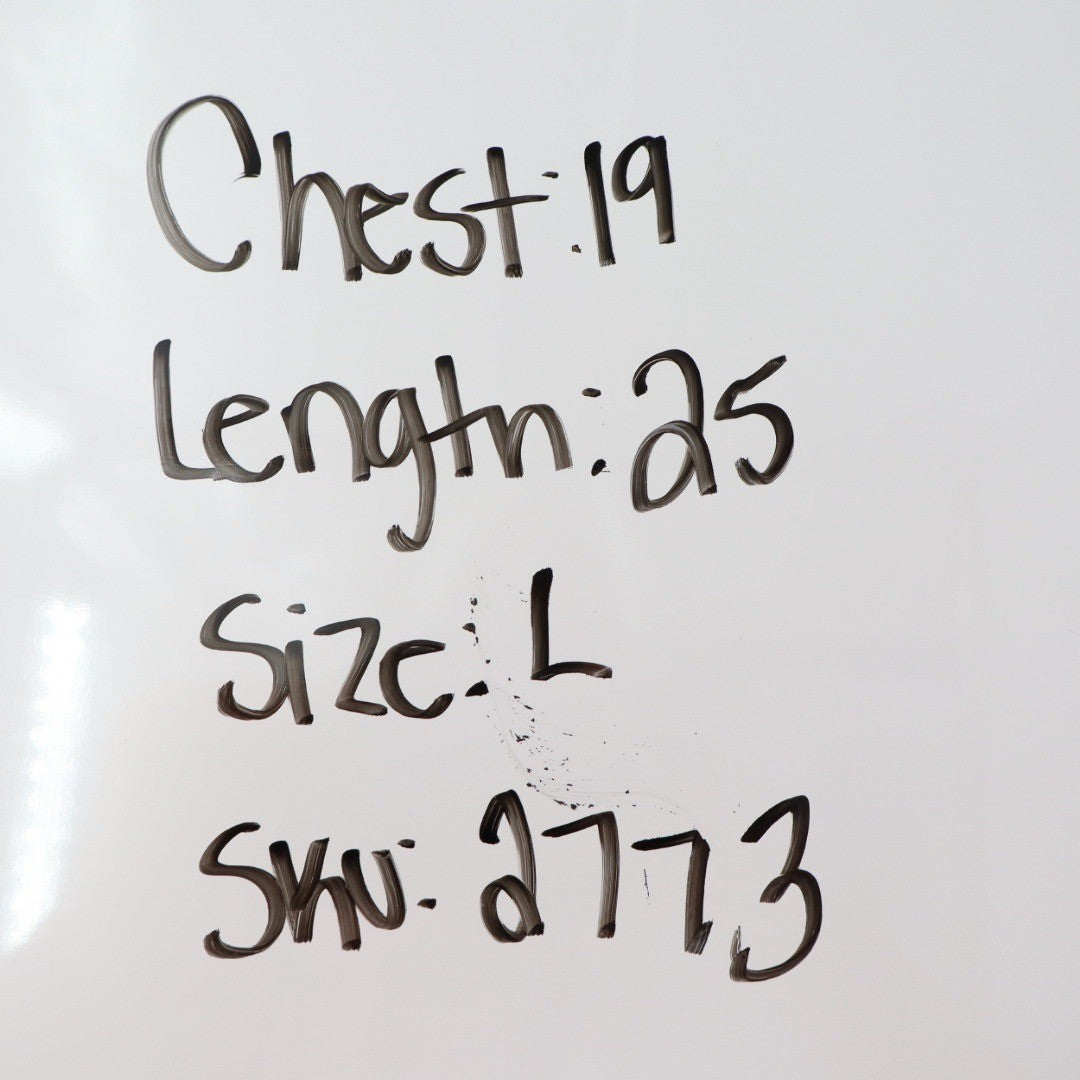 Chest:19
Length:25
Size: L
SKU: 2773